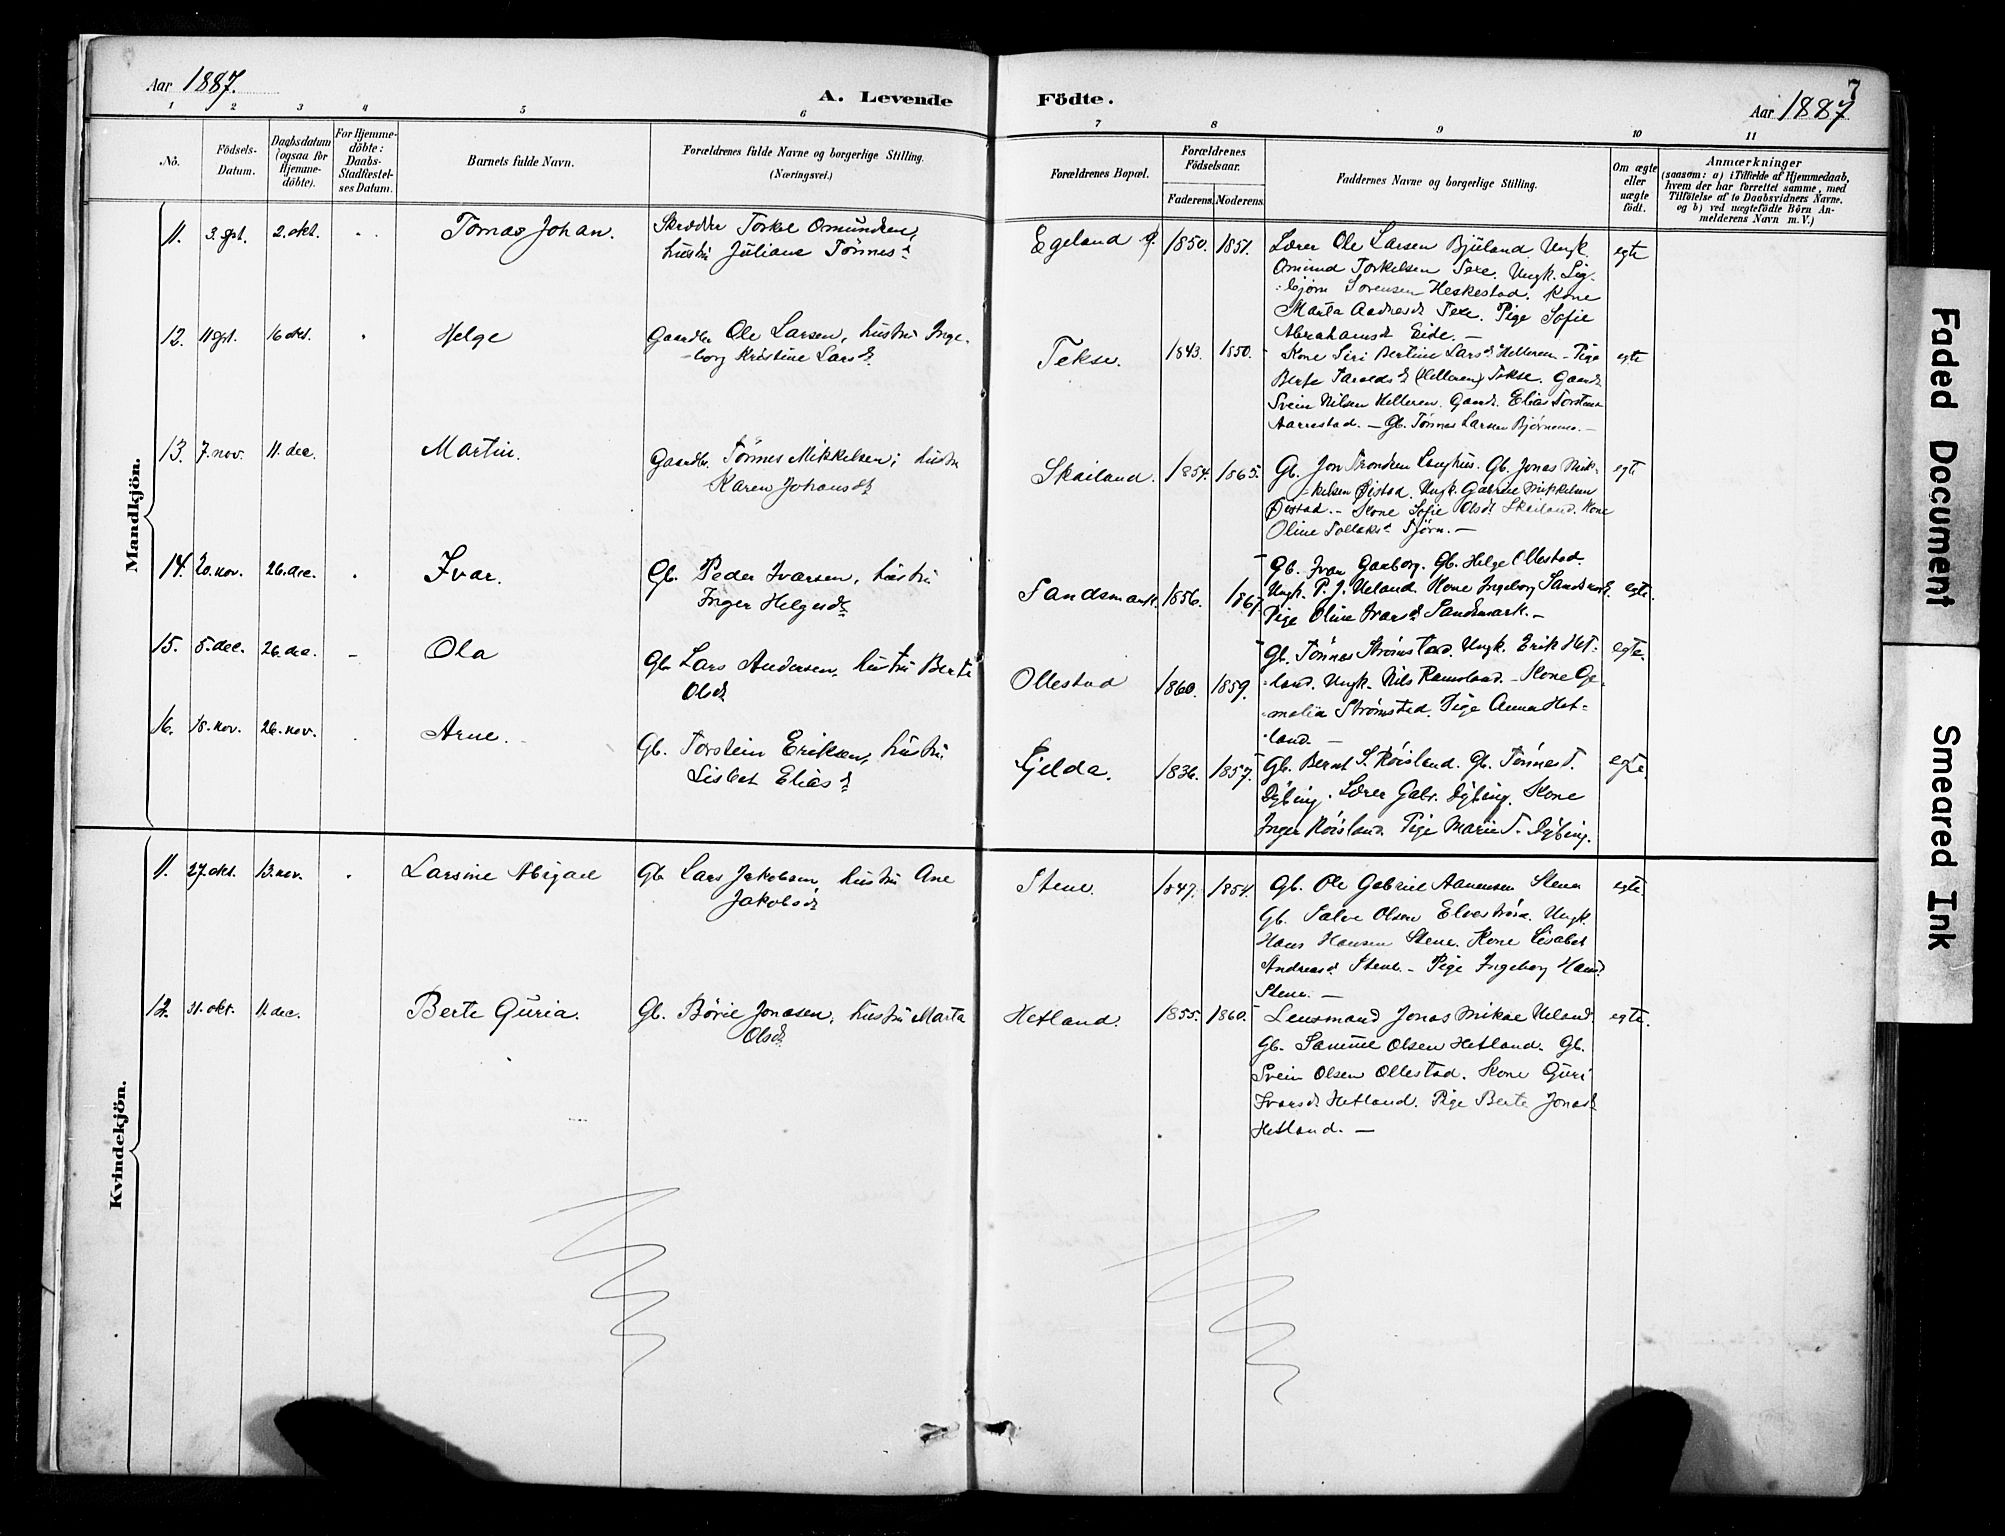 Aar 1887.
A. Levende
Födte.
7
Aar 1887
1 2 3 4 5 6 7 8 9 10 11
No.
Födsels-Datum.
Daabsdatum (ogsaa for Hjemme-döbte).
For Hjemme-döbte: Daabs-Stadfæstel-ses Datum.
Barnets fulde Navn.
Forældrenes fulde Navne og borgerlige Stilling.
(Næringsvei.)
Forældrenes Bopæl.
Forældrenes Födselsaar.
Faderens. Moderens.
Faddernes Navne og borgerlige Stilling.
Om ægte eller uægte födt.
Anmærkninger
(saasom: a) i Tilfælde af Hjemmedaab, hvem der har forrettet samme, med Tilföielse af to Daabsvidners Navne. og b) ved uægtefödte Börn An-melderens Navn m. V.)
Mandkjön.
11. 3. spt. 2. okt. Tomas Johan. Skrædder Torkel Omundsen,
hustru Juliane Tönnesd
Egeland 1850. 1851. Lærer Ole Larsen Bjuland. Ungk. egte
Omund Torkelsen Texe. Ungk. Sig-
bjørn Sorensen Heskestad. Kone
Marta Aadnesd Texe. Pige Sofie
Abrahamsd Eide. —
12. 11 spt. 16 okt. Helge Gaardbr Ole Larsen, hustru Inge-
borg Kristine Larsd.
Tekse. 1843. 1850. Kone Siri Bertine Larsd Helleren - Pige egte
Berte Taraldsd (Helleren) Tekse. Gaardb
Svein Nilsen Helleren. Gaardb. Elias Torstens
Aarrestad. — Gb. Tønnes Larsen
13. 7. nov. 11. dec. Martin. Gaardbr. Tønnes Mikkelsen, hustru
Karen Johansdt
Skailand. 1854. 1865. Gb. Jon Trondsen Langhus. Gb. Jonas Mik- egte
kelsen Øistad. Ungk. Gabriel Mikkelsen
Øistad. - Kone Sofie Olsdt Skailand. Kone
Oline Tollaksd Tjørn. —
14. 20. nov. 26. dec. Ivar. Gb. Peder Ivarsen, hustru
Inger Helgesdt
Sandsmark. 1856. 1867 Gb. Ivar Gaaborg. Gb. Helge Ollestad.
Ungk. P. J. Ueland. Kone Ingeborg Sandsmark. egte.
Pige Oline Ivarsd Sandsmark. —
15. 5. dec. 26. dec. Ola Gb Lars Andersen, hustru Berte
Olsdt
Ollestad 1860. 1859. Gb. Tønnes Strømstad. Ungk. Erik Het- egte.
land. Ungk. Nils Ramsland. - Kone Ge-
malie Strømstad. Pige Anna Het-
land. —
16. 18. nov. 26. nov. Arne. Gb. Torstein Eriksen, hustru
Lisbet Eliasd
Gjelda. 1836. 1857. Gb. Bernt S. Røisland. Gb. Tønnes T. egte.
Dybing. Lærer Gabr. Dybing. Kone
Inger Røisland. Pige Marie T. Dybing.
Kvindekjön.
11. 27. okt. 13. nov. Larsine Abigael Gb Lars Jakobsen, hustru Ane
Jakobsdt
Stene. 1847. 1854. Gb. Ole Gabriel Aanensen Stene egte.
Gb. Salve Olsen Elvestrøm. Ungk.
Hans Hansen Stene. Kone Lisabet
Andreasd Stene. - Pige Ingeborg Hansd
Stene. —
12. 31. okt. 11. dec. Berte Guria. Gb. Børil Jonasen, hustru Marta
Olsdt
Hetland. 1855. 1860. Lensmand Jonas Mikal Ueland. egte.
Gb. Samuel Olsen Hetland. Gb.
Svein Olsen Ollestad. Kone Guri
Ivarsd Hetland. Pige Berte Jonasd
Hetland. —
Faded Document
Smeared Ink